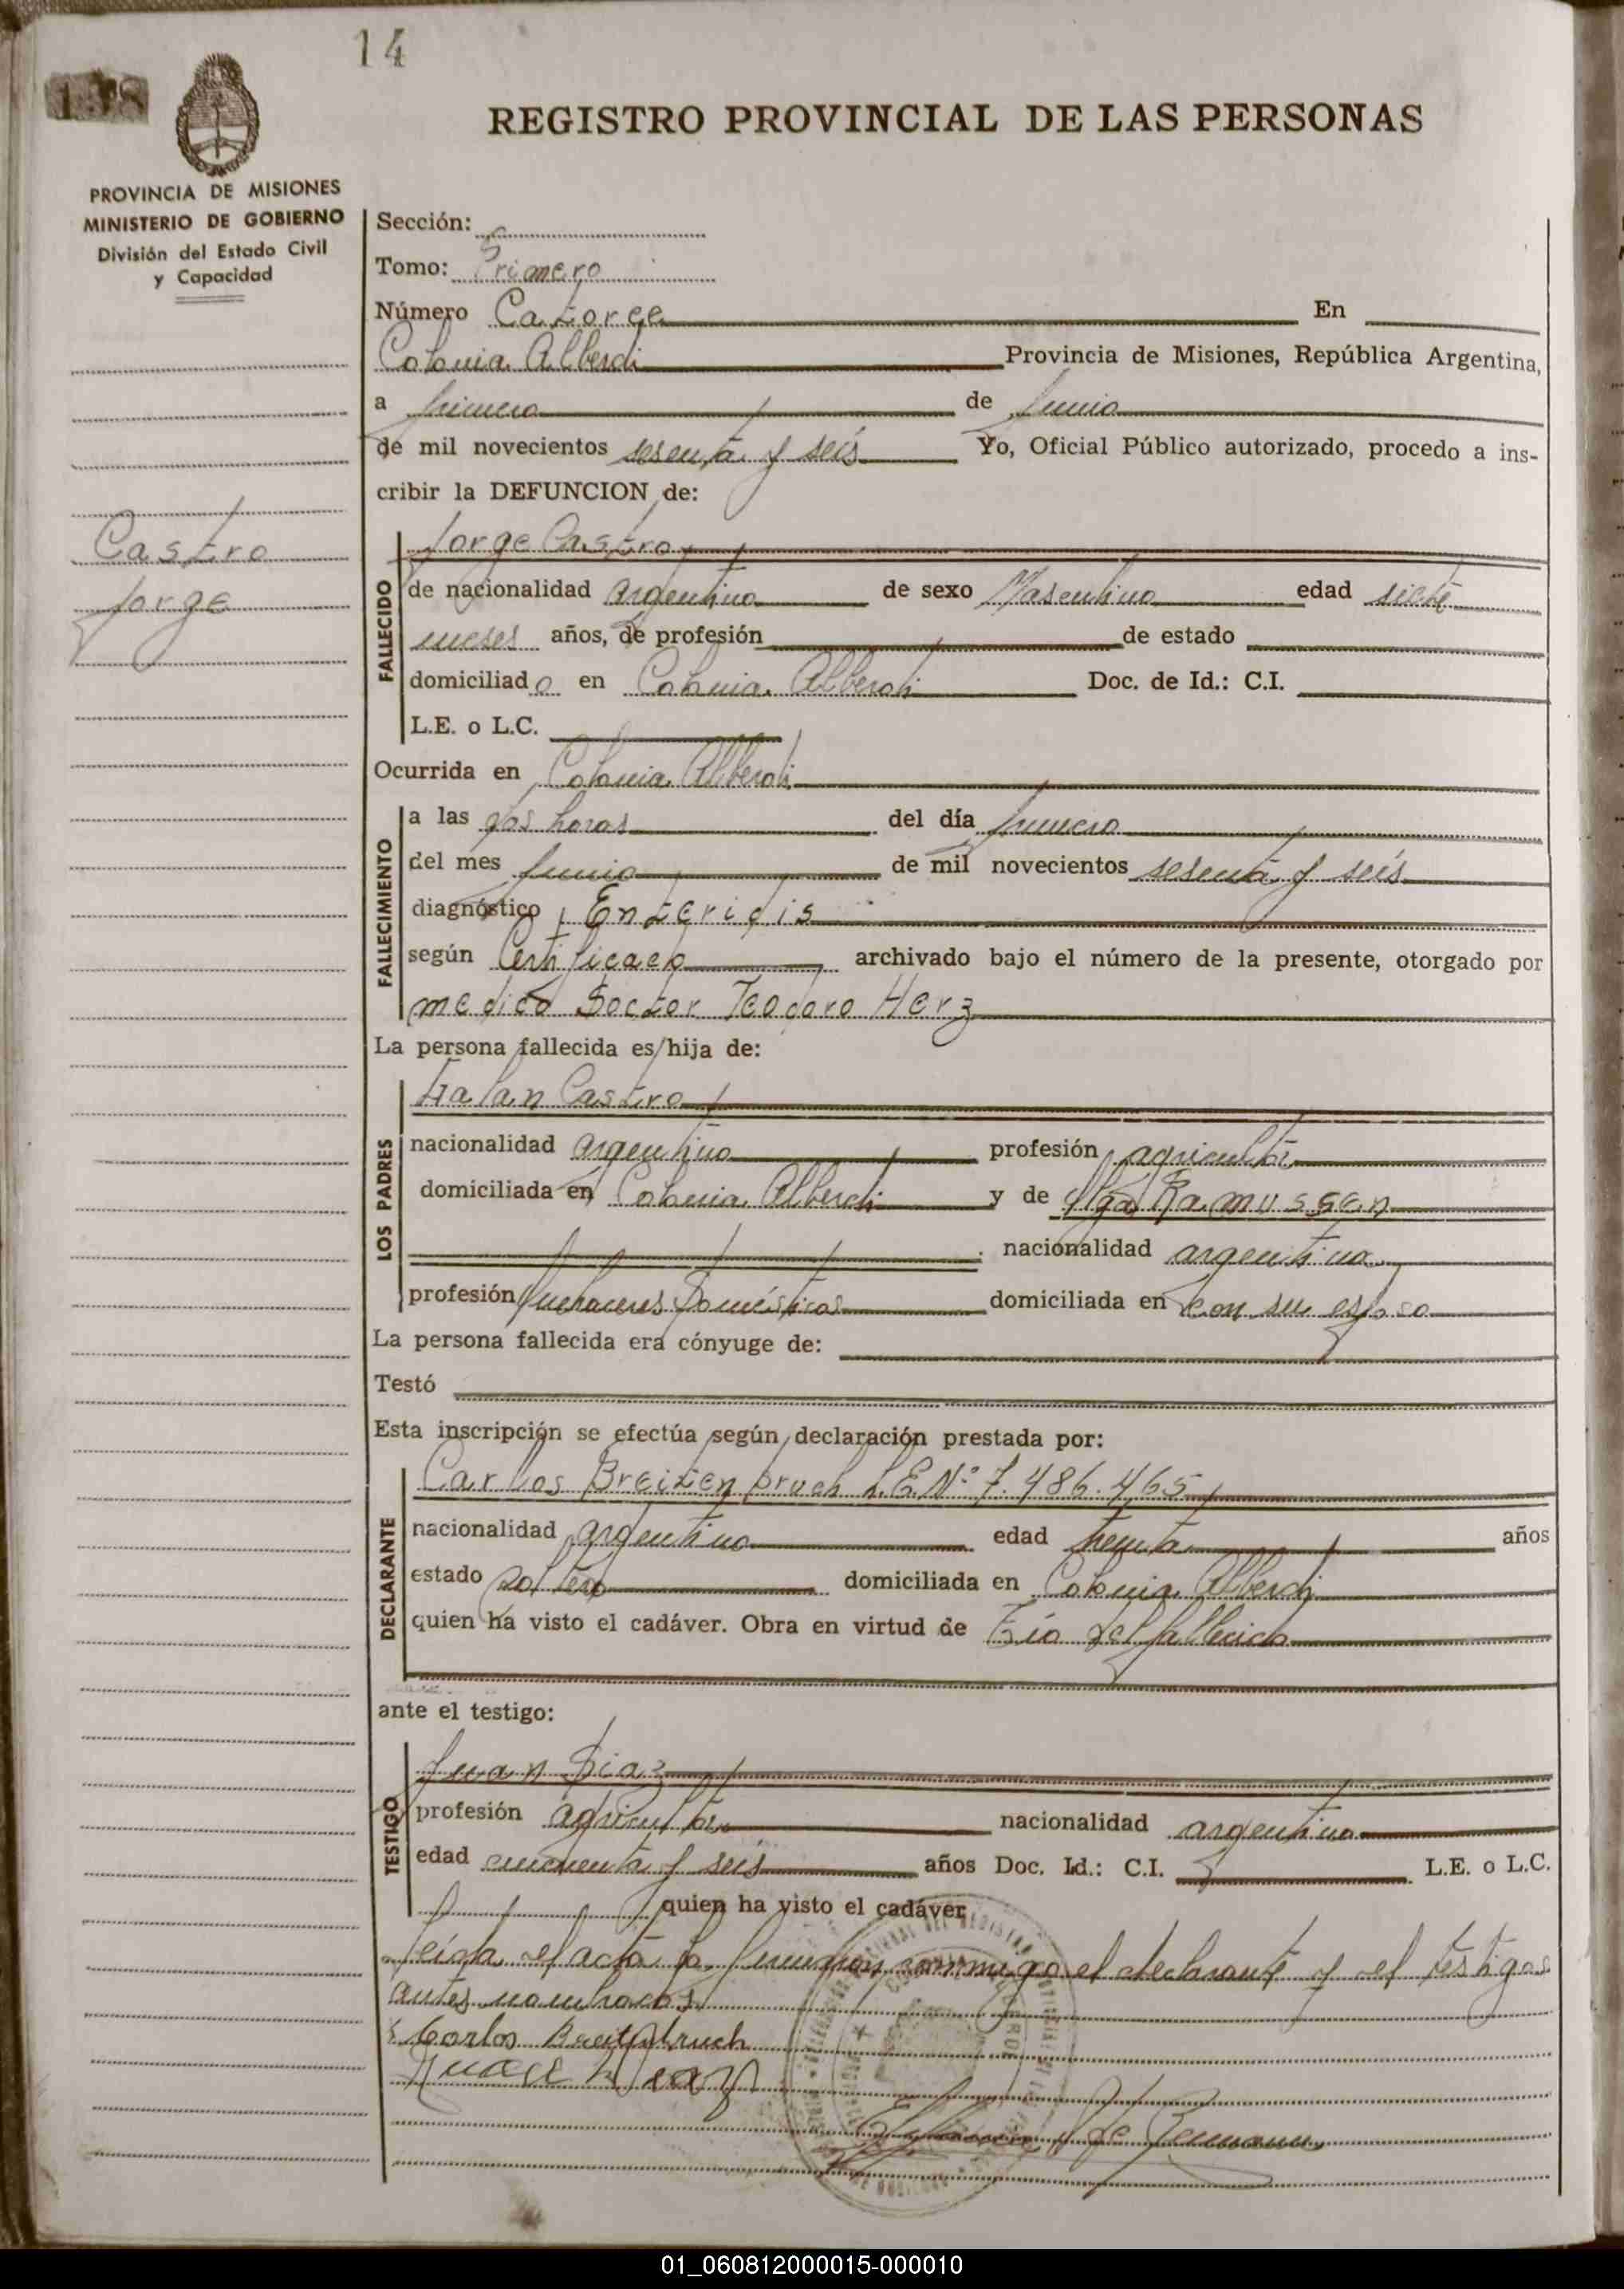 14
138
REGISTRO PROVINCIAL DE LAS PERSONAS
PROVINCIA DE MISIONES
MINISTERIO DE GOBIERNO
División del Estado Civil
y Capacidad
Castro
Jorge
Sección:
Tomo: Primero
Número Catorce En
Colonia Alberdi Provincia de Misiones, República Argentina,
a primero de Junio
de mil novecientos sesenta y seis Yo, Oficial Público autorizado, procedo a ins-
cribir la DEFUNCION de:
Jorge Castro
FALLECIDO
de nacionalidad argentino de sexo Masculino edad siete
meses años, de profesión de estado
domiciliado en Colonia Alberdi Doc. de Id.: C.I.
L.E. o L.C.
Ocurrida en Colonia Alberdi
FALLECIMIENTO
a las dos horas del día primero
del mes Junio de mil novecientos sesenta y seis
diagnóstico Enteridis
según Certificado archivado bajo el número de la presente, otorgado por
medico Doctor Teodoro Herz
La persona fallecida es hija de:
LOS PADRES
Castro
nacionalidad argentino profesión agricultor
domiciliada en Colonia Alberdi y de Olga Ramussen
nacionalidad argentina
profesión Quehaceres Domésticos domiciliada en con su esposo
La persona fallecida era cónyuge de:
Testó
Esta inscripción se efectúa según declaración prestada por:
DECLARANTE
Carlos Breitenbruch L.E. Nº 7.486.465
nacionalidad argentino edad treinta años
estado soltero domiciliada en Colonia Alberdi
quien ha visto el cadáver. Obra en virtud de Tío del fallecido
ante el testigo:
TESTIGO
Juan Diaz
profesión agricultor nacionalidad argentino
edad cincuenta y seis años Doc. Id.: C.I. L.E. o L.C.
quien ha visto el cadáver
Leída el acta la firmaron conmigo el declarante y el testigo
antes nombrados
Carlos Breitenbruch
Juan Diaz
01_060812000015-000010